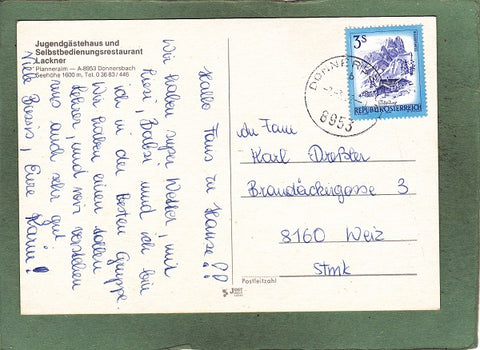 Jugendgästehaus und
Selbstbedienungsrestaurant
Lackner
Planneralm — A-8953 Donnersbach
Seehöhe 1600 m, Tel. 0 36 83 / 446
Hallo Fans zu Hause!?
Wir haben super Wetter, mir
und ich bin
ich in der besten Gruppe
Wir haben einen tollen
Lehrer, und wir verstehen
uns auch sehr gut!
Viele Bussis, Eure Karin!
3s
REPUBLIK ÖSTERREICH
8953
An Fam.
Karl Dreßler
Brandäckergasse 3
8160 Weiz
Stmk
Postleitzahl